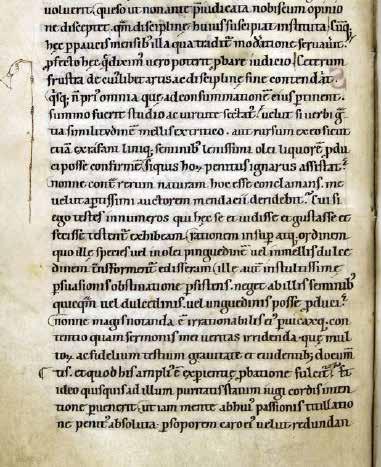 voluerit, queso ut non ante p̄iudicata nobiscum opinio
ne disceptet. qm̄ discipline huius suscepiat instituta. Cūq̨
hec p̄ paucis mensibꝰ illa qua tradim̄ moderatione seruauit.
p̄fecto hec q̄ diximꝰ vero poterit p̄bare iudicio. Ceterum
frustra de cuiꝰlibet artis ac discipline fine contendit
q̄sq̨. n̄ prꝰ omnia que ad consummationē eius pertinent.
summo fuerit studio ac uirtute sectatꝰ. velut si uerbi gr̄a
ua similitudinem mellis ex tritico. aut rursum ex eo sicut
etiā ex rafani liniq̨ seminibꝰ lenissimi olei liquorē p̄du
ci posse confirmē. si quis hoꝝ penitus ignarus assistat.
nonne contꝰ rerum naturam hoc esse conclamans. me
velut aptissimi auctorem mendacii deridebit. Cui si
ego testes innumeros qui hec se et uidisse et gustasse et
fecisse testentꝰ exhibeam. rationem insup̄ atq̨ ordinem
quo ille species vel in olei pinguedinē vel in mellis dulce
dinem transformentꝰ edisseram. ille autē in stultissime
p̄suasionis obstinatione p̄sistens. neget ab illis seminibꝰ
quicq̄m vel dulcedinis. vel unguedinis posse p̄duci.
nonne magis notanda ē irrationabilis eiꝰ puicaxq̨ con
tentio quam sermonis mei veritas irridenda. que mul
toꝝ. ac fidelium testium grauitate. et euidentibꝰ docum̄
tis. et quod his amplꝰ ē experientie p̄batione fulcitꝰ.
ideo quisquis ad illum puritatis statum iugi cordis inten
tione p̄uenerit. ut iam mente ab huiꝰ passionis titillatio
ne penitꝰ absoluta. p̄ soporem caro eiꝰ velut redundan